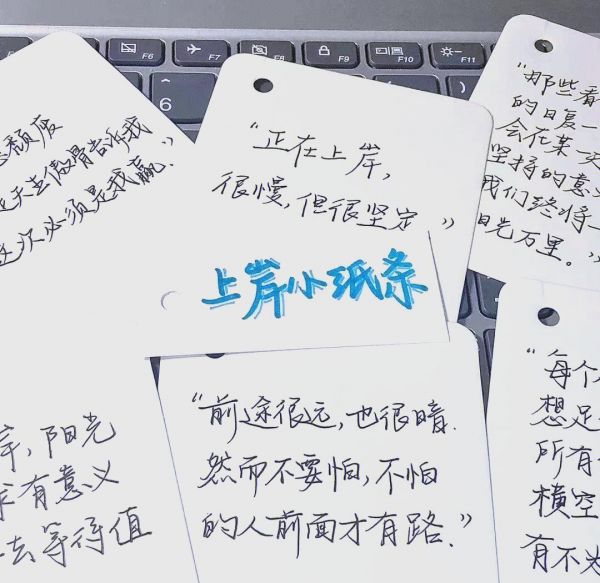 F6 F7 F8 F9 F10 F11
6
颓废
天生傲骨告诉我
这次必须是我赢。”
“正在上岸,
很慢,但很坚定。”
“那些看
的日复一
会在某一天
坚持的意义
我们终将一
阳光万里。”
上岸小纸条
岸,阳光
有意义
去等待值
“前途很远,也很暗.
然而不要怕,不怕
的人前面才有路.”
“每个
想足
所有
横空
有不为